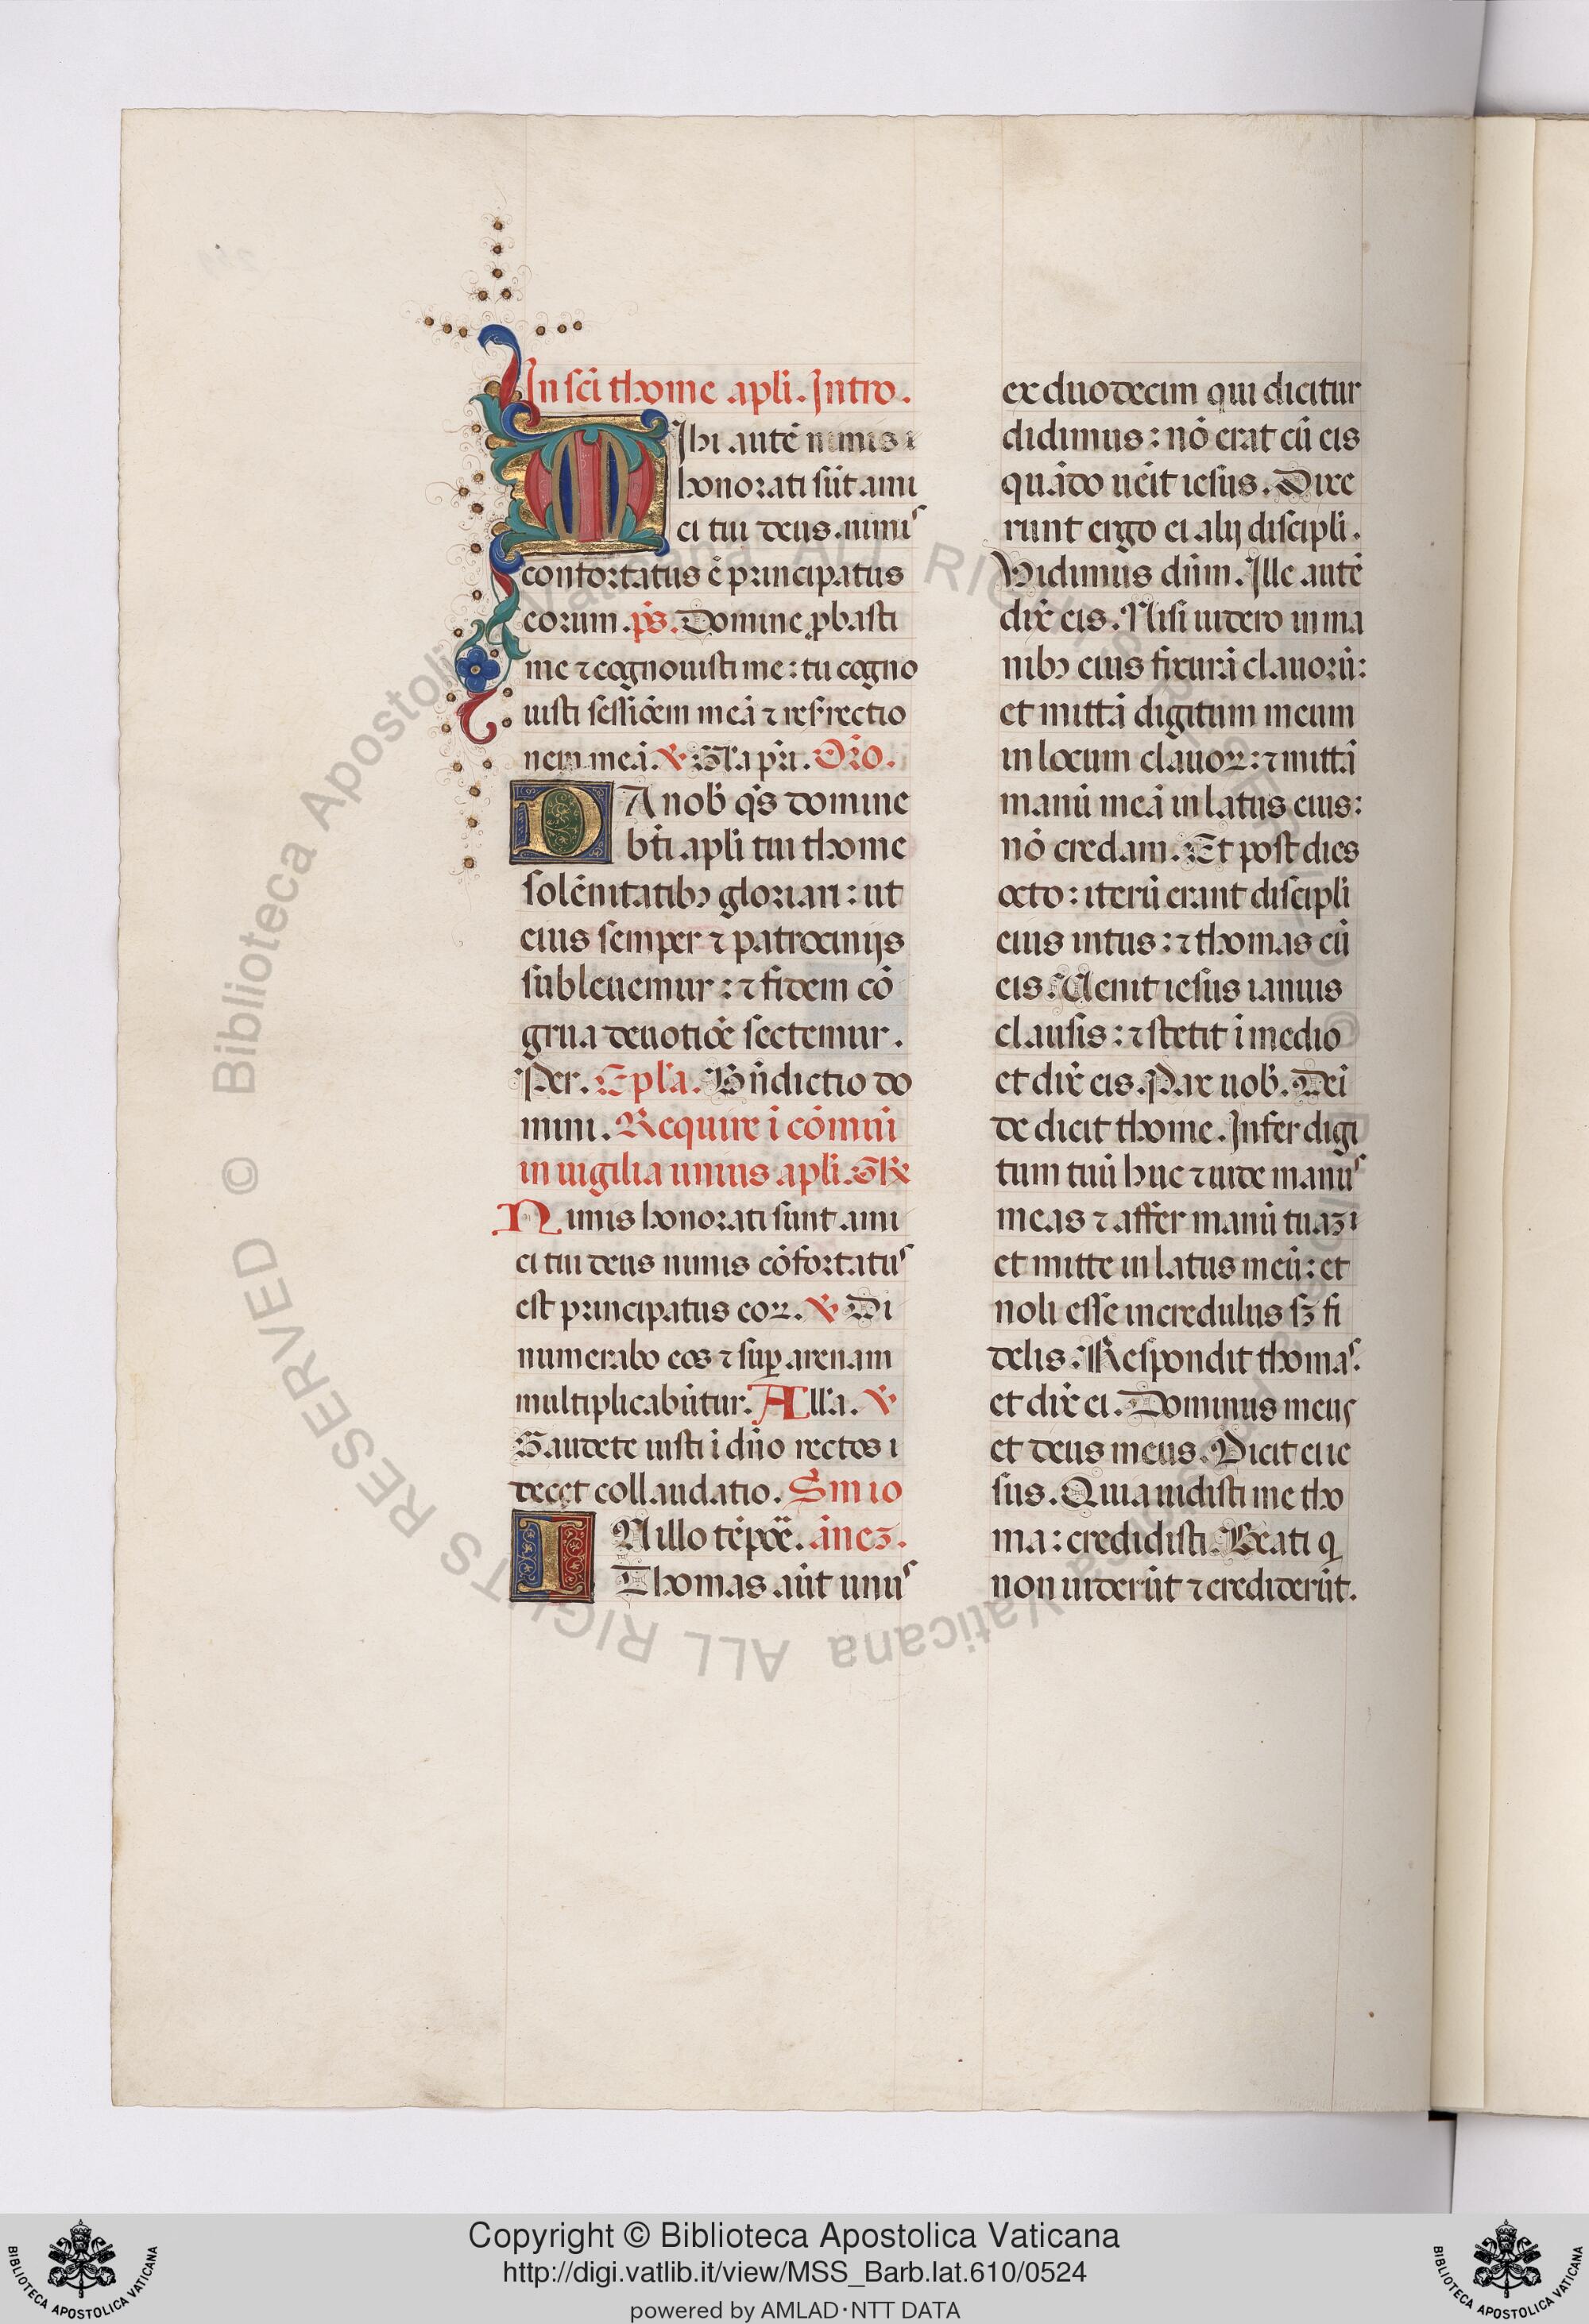 In sc̄i thome apl̄i. Intro.
MIhi autē nimis
honorati sūt ami
ci tui deus. nimis
confortatus ē principatus
eorum. p̄s. Domine ꝓbasti
me ⁊ cognouisti me: tu cogno
uisti sessiōem meā ⁊ resurectio
nem meā. ℣ Gl̄a pr̄i. Or̄o.
DA nob̄ qs̄ domine
bt̄i apl̄i tui thome
solēnitatibꝫ gloriari: ut
eius semper ⁊ patrocinijs
subleuemur: ⁊ fidem cō
grua deuotiōe sectemur.
Per. Epl̄a. Bn̄dictio do
mini. Require ī cōmūi
in uigilia unius apl̄i. GR̄
Nimis honorati sunt ami
ci tui deus nimis cōfortatus
est principatus eoꝝ. ℣ Di
numerabo eos ⁊ suꝑ arenam
multiplicabūtur. All̄a. ℣
Gaudete iusti ī dn̄o rectos
decet collaudatio. Sm̄ io
IN illo tēpoē.
Thomas aūt unus
ex duodecim qui dicitur
didimus: nō erat cū eis
quādo uēit iesus. Dixe
runt ergo ei alij discipli.
Vidimus dn̄m. Ille autē
dix̄ eis. Nisi uidero in ma
nibꝫ eius fixurā clauorū:
et mittā digitum meum
in locum clauoꝝ: ⁊ mittā
manū meā in latus eius:
nō credam. Et post dies
octo: iterū erant discipli
eius intus: ⁊ thomas cū
eis. Uenit iesus ianuis
clausis: ⁊ stetit ī medio
et dix̄ eis. Pax uob̄. Deī
de dicit thome. Infer digi
tum tuū huc ⁊ uide manus
meas ⁊ affer manū tuaꝫ
et mitte in latus meū: et
noli esse incredulus sꝫ fi
delis. Respondit thomas.
et dix̄ ei. Dominus meus
et deus meus. Dicit ei ie
sus. Quia uidisti me tho
ma: credidisti. Beati q
non uiderūt ⁊ crediderūt.
© Biblioteca Apostolica Vaticana ALL RIGHTS RESERVED
Copyright © Biblioteca Apostolica Vaticana
http://digi.vatlib.it/view/MSS_Barb.lat.610/0524
powered by AMLAD·NTT DATA
BIBLIOTECA APOSTOLICA VATICANA
BIBLIOTECA APOSTOLICA VATICANA